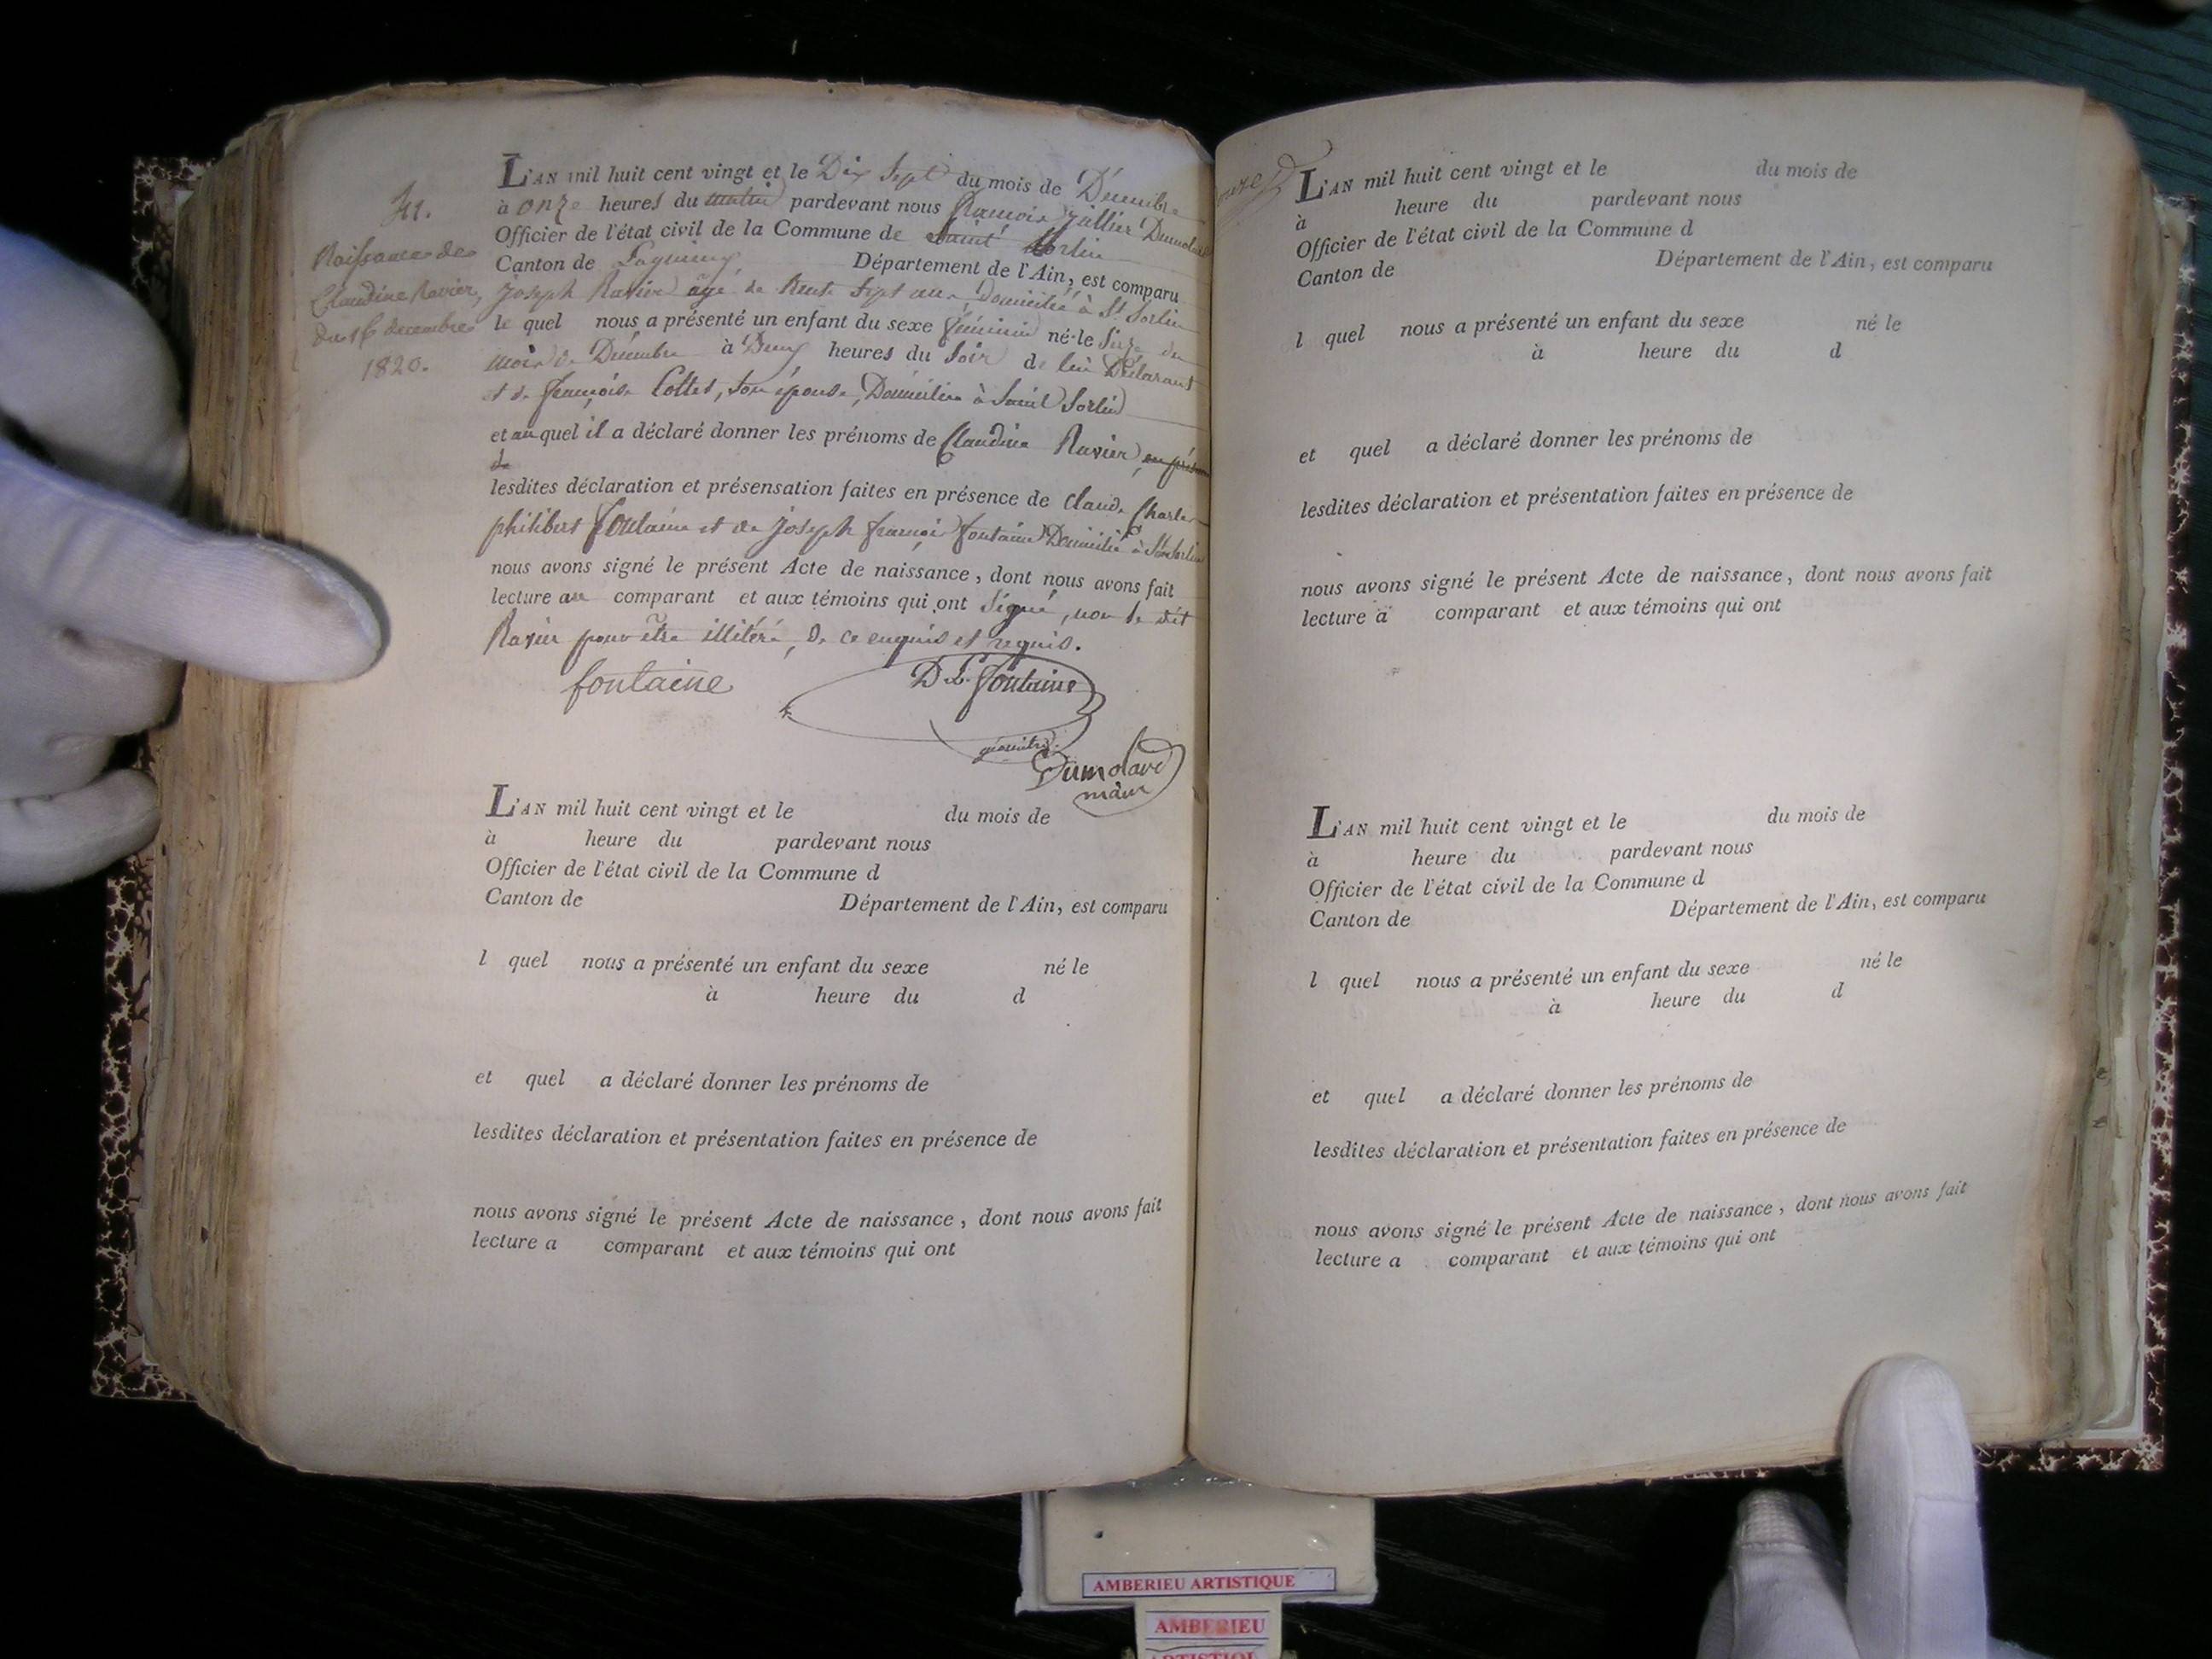 41.
Naissance de
Claudine Ravier,
du 16 decembre
1820.
L'AN mil huit cent vingt et le Dix Sept du mois de Décembre
à onze heures du matin pardevant nous Dumolard
Officier de l'état civil de la Commune de Saint Sorlin
Canton de Lagnieu, Département de l'Ain, est comparu
Joseph Ravier âgé de trente sept ans, domicilié à St Sorlin
le quel nous a présenté un enfant du sexe féminin né le Seize du
mois de Décembre à Deux heures du Soir de lui Déclarant
et de françoise Collet, son épouse, Domiciliée à Saint Sorlin
et au quel il a déclaré donner les prénoms de Claudine Ravier, en présence
de
lesdites déclaration et présensation faites en présence de Claude Charle
philibert fontaine et de Joseph françois fontaine Domicilié à St Sorlin
nous avons signé le présent Acte de naissance, dont nous avons fait
lecture au comparant et aux témoins qui ont Signé, non le dit
Ravier pour être illitéré, de ce enquis et requis.
fontaine
D L. fontaine
géomètre
Dumolard
maire
L'AN mil huit cent vingt et le du mois de
à heure du pardevant nous
Officier de l'état civil de la Commune d
Canton de Département de l'Ain, est comparu
l quel nous a présenté un enfant du sexe né le
à heure du d
et quel a déclaré donner les prénoms de
lesdites déclaration et présentation faites en présence de
nous avons signé le présent Acte de naissance, dont nous avons fait
lecture a comparant et aux témoins qui ont
L'AN mil huit cent vingt et le du mois de
à heure du pardevant nous
Officier de l'état civil de la Commune d
Canton de Département de l'Ain, est comparu
l quel nous a présenté un enfant du sexe né le
à heure du d
et quel a déclaré donner les prénoms de
lesdites déclaration et présentation faites en présence de
nous avons signé le présent Acte de naissance, dont nous avons fait
lecture a comparant et aux témoins qui ont
L'AN mil huit cent vingt et le du mois de
à heure du pardevant nous
Officier de l'état civil de la Commune d
Canton de Département de l'Ain, est comparu
l quel nous a présenté un enfant du sexe né le
à heure du d
et quel a déclaré donner les prénoms de
lesdites déclaration et présentation faites en présence de
nous avons signé le présent Acte de naissance, dont nous avons fait
lecture a comparant et aux témoins qui ont
AMBERIEU ARTISTIQUE
AMBERIEU
ARTISTIQUE